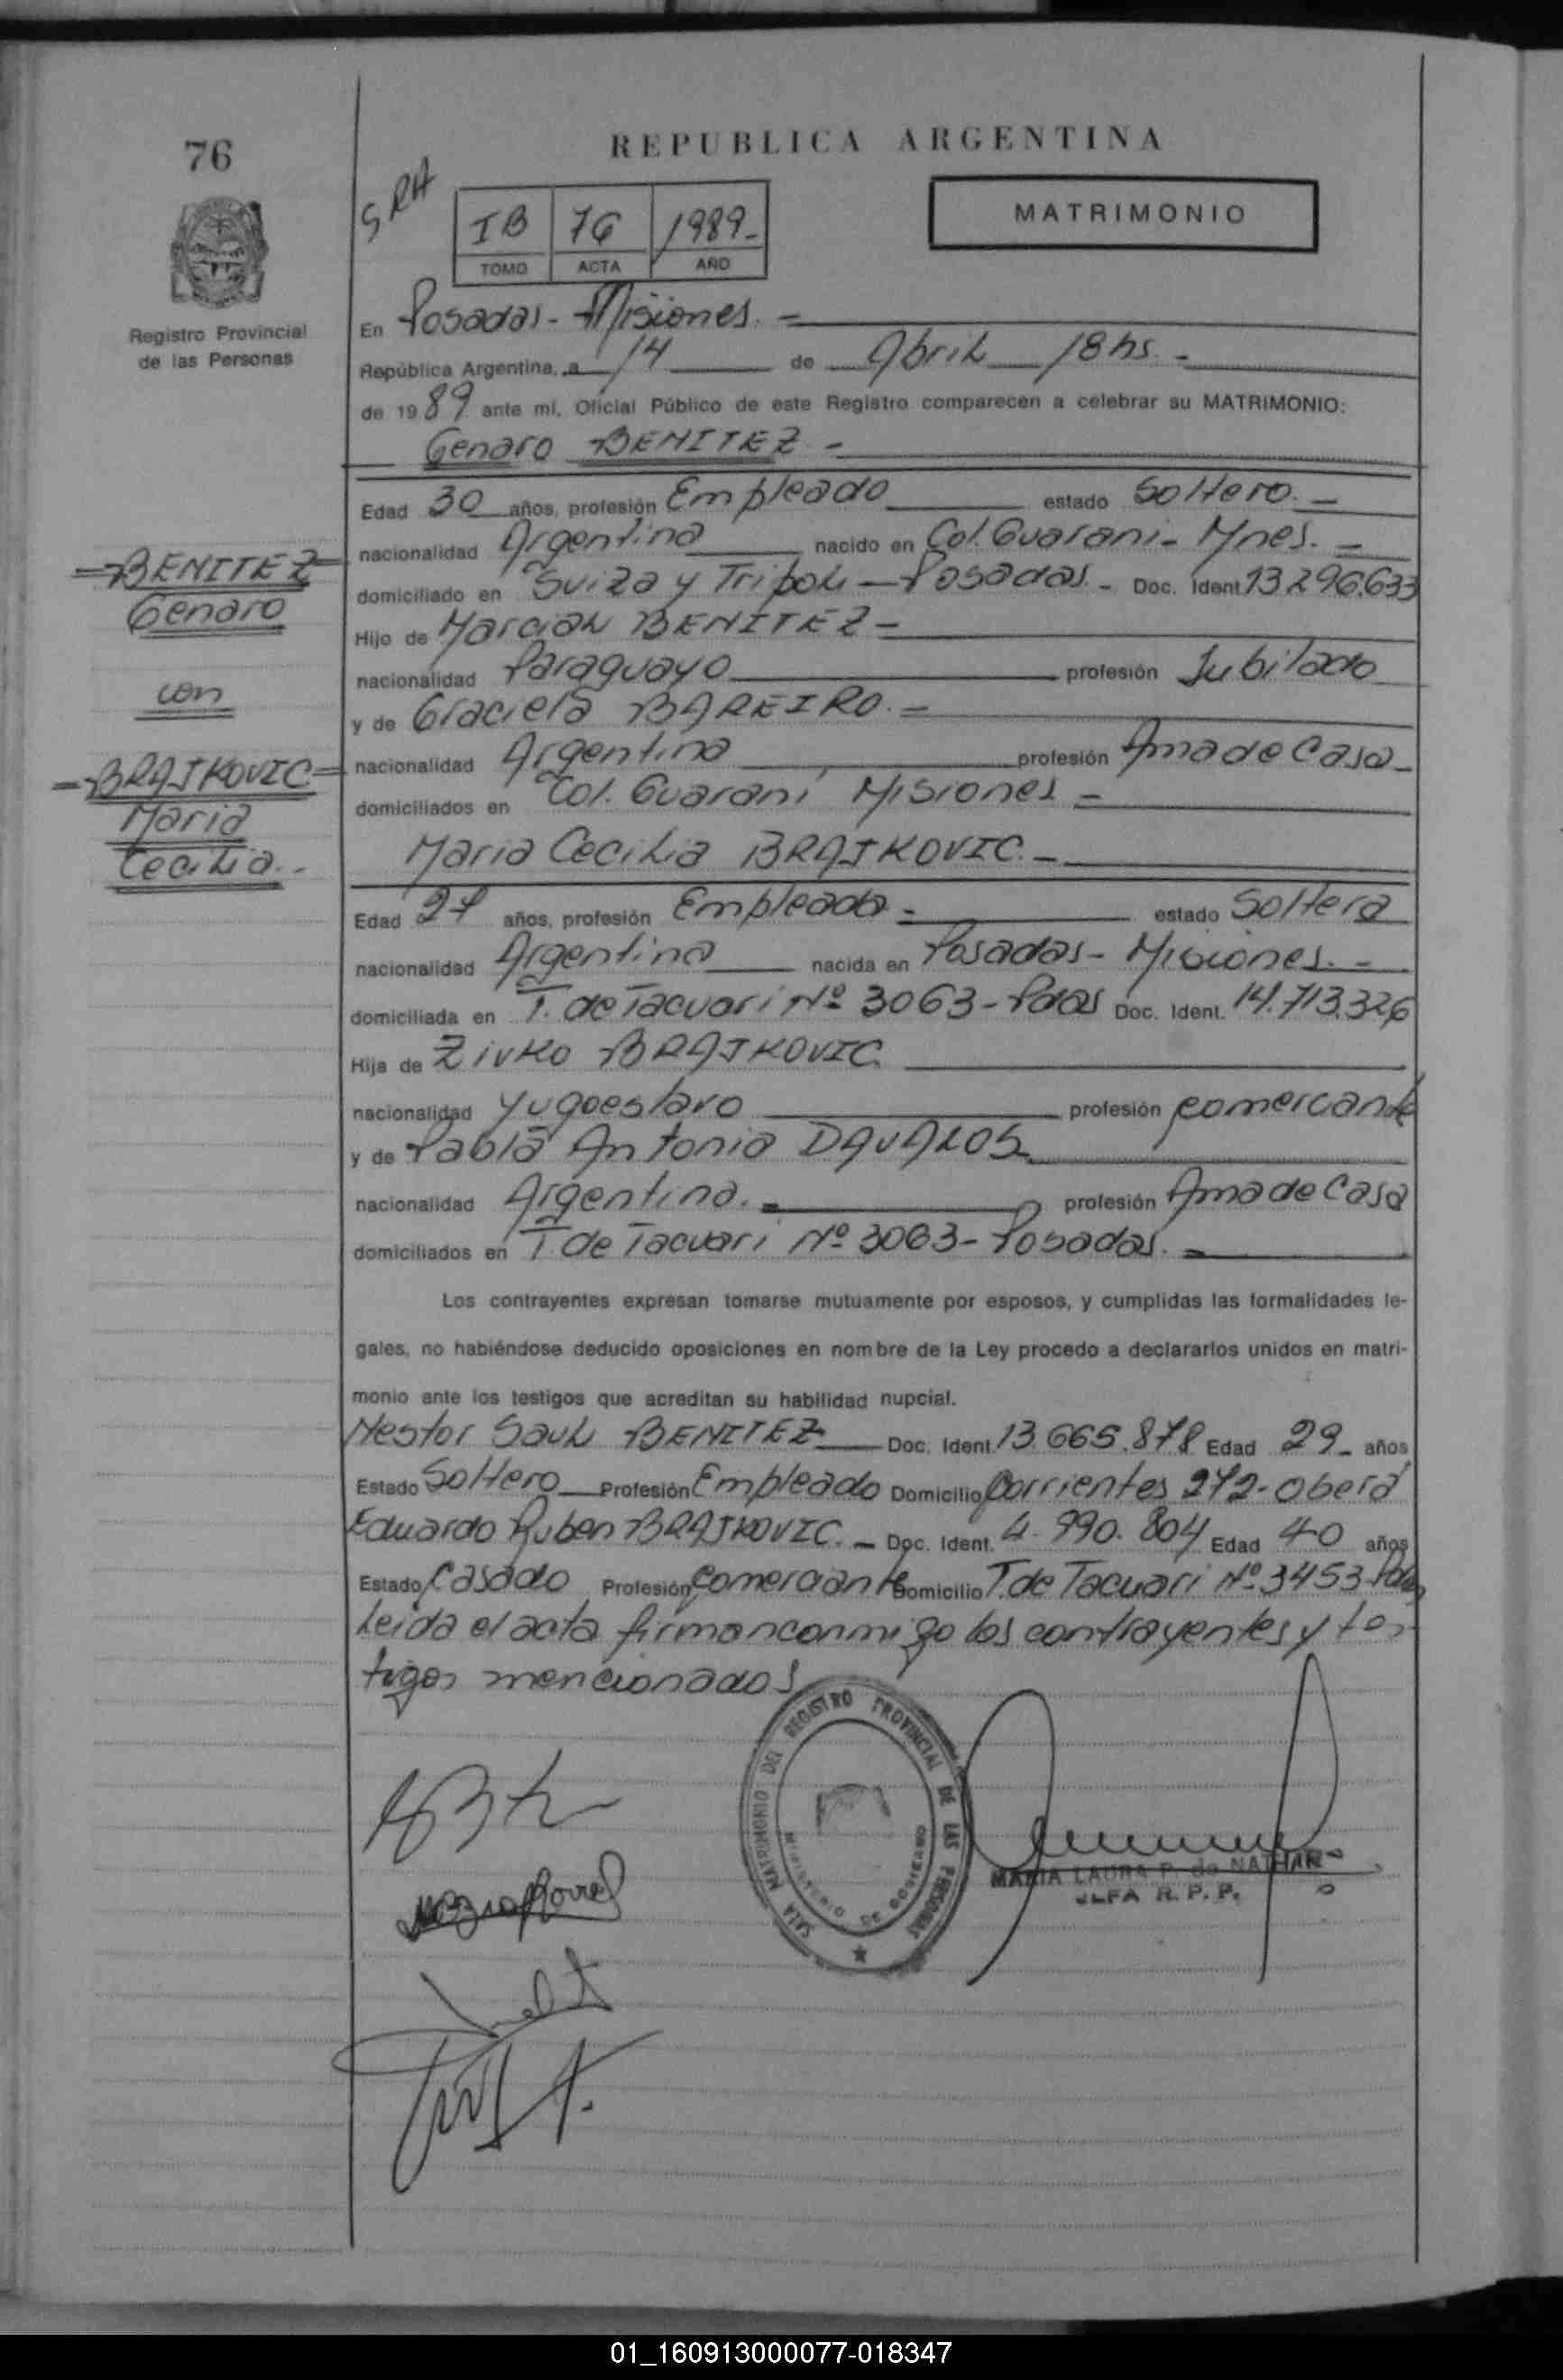 76
REPUBLICA ARGENTINA
SRA
IB 76 1989-
TOMO ACTA AÑO
MATRIMONIO
Registro Provincial
de las Personas
En Posadas - Misiones. -
República Argentina, a 14 de Abril 18 hs. -
de 1989 ante mí, Oficial Público de este Registro comparecen a celebrar su MATRIMONIO:
Genaro BENITEZ -
Edad 30 años, profesión Empleado estado Soltero. -
nacionalidad Argentina nacido en Col. Guarani - Mnes. -
domiciliado en Suiza y Tripoli - Posadas - Doc. Ident 13.296.633
Hijo de Marcial BENITEZ -
nacionalidad Paraguayo profesión Jubilado
y de Graciela BAREIRO. -
nacionalidad Argentina profesión Ama de Casa -
domiciliados en Col. Guarani, Misiones -
Maria Cecilia BRAJKOVIC. -
- BENITEZ -
Genaro
con
- BRAJKOVIC -
Maria
Cecilia. -
Edad 27 años, profesión Empleada - estado Soltera
nacionalidad Argentina nacida en Posadas - Misiones. -
domiciliada en T. de Tacuari Nº 3063 - Pdas Doc. Ident. 14.713.326
Hija de Zivko BRAJKOVIC.
nacionalidad Yugoeslavo profesión comerciante
y de Pabla Antonia DAVALOS
nacionalidad Argentina. - profesión Ama de Casa
domiciliados en T. de Tacuari Nº 3063 - Posadas. -
Los contrayentes expresan tomarse mutuamente por esposos, y cumplidas las formalidades le-
gales, no habiéndose deducido oposiciones en nombre de la Ley procedo a declararlos unidos en matri-
monio ante los testigos que acreditan su habilidad nupcial.
Nestor Saul BENITEZ Doc. Ident. 13.665.878 Edad 29 - años
Estado Soltero Profesión Empleado Domicilio Corrientes 272 - Oberá
Eduardo Ruben BRAJKOVIC. - Doc. Ident. 4.990.804 Edad 40 años
Estado Casado Profesión Comerciante Domicilio T. de Tacuari Nº 3453 - Pdas
Leida el acta firman conmigo los contrayentes y tes-
tigos mencionados
SALA MATRIMONIO DEL REGISTRO PROVINCIAL DE LAS PERSONAS
MINISTERIO DE GOBIERNO
MARIA LAURA P. de NATHAN
JEFA R. P. P.
01_160913000077-018347